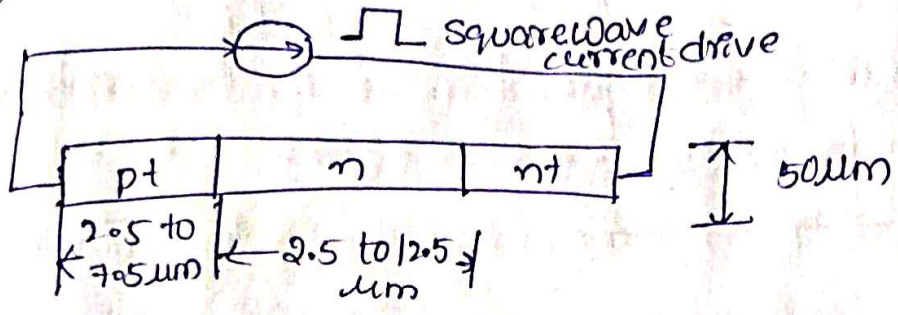 squarewave
current drive
pt n nt 50µm
2.5 to
7.5µm
2.5 to 12.5
µm